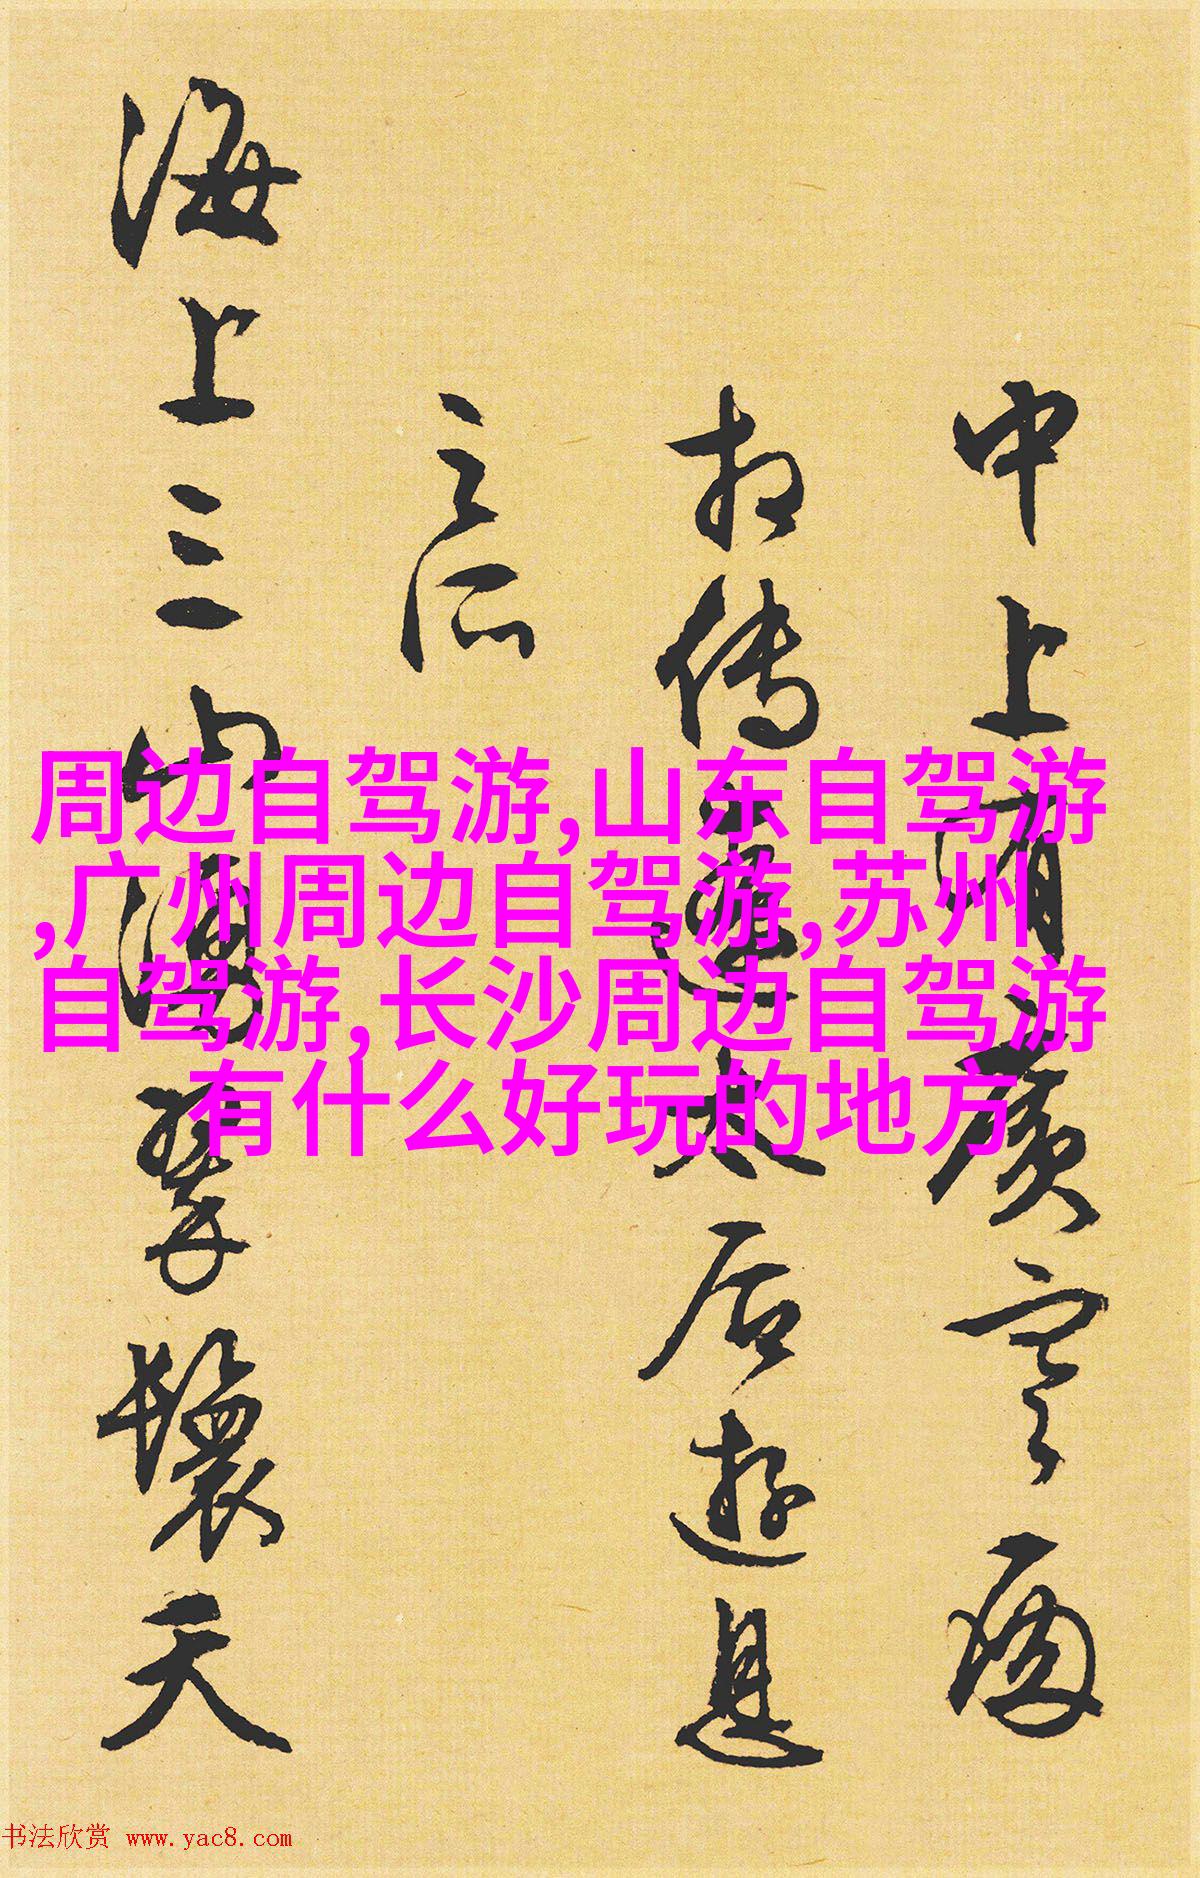 中上有廣寒殿
相傳遼太后遊息
之所
海上三山湧翠鬟天
周边自驾游,山东自驾游
,广州周边自驾游,苏州
自驾游,长沙周边自驾游
有什么好玩的地方
书法欣赏 www.yac8.com